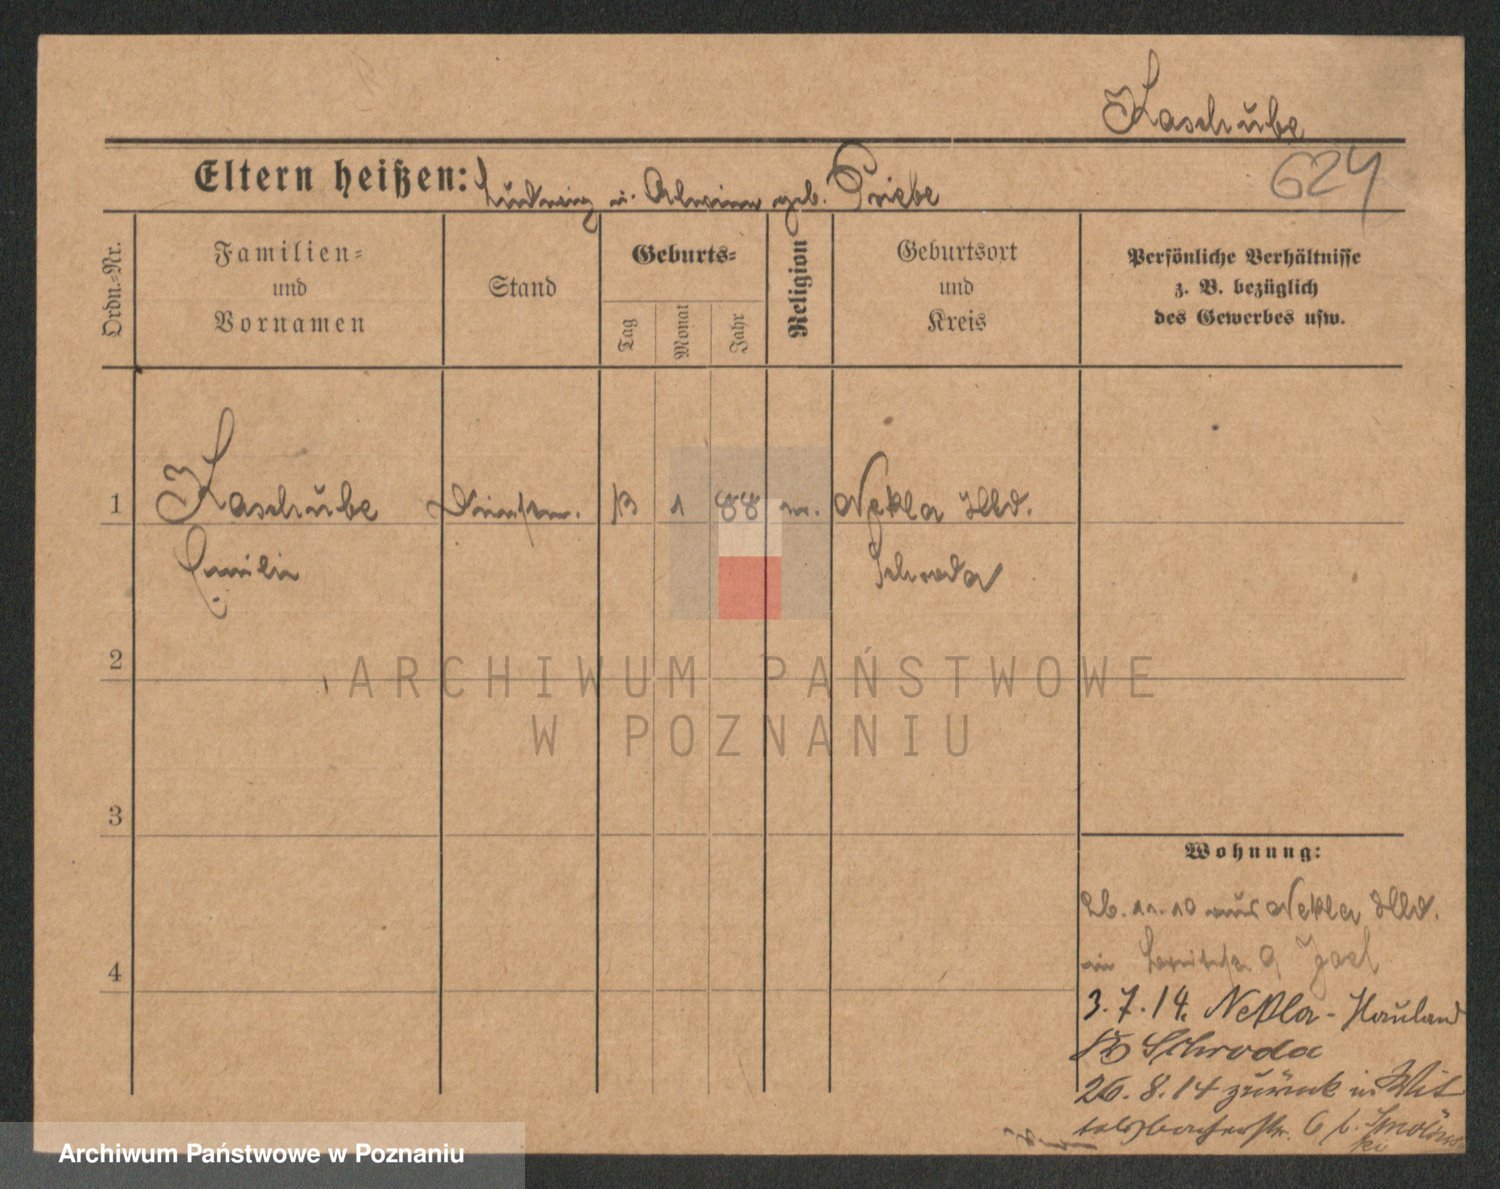 Kaschube
Eltern heißen: Ludwig u. Alwine geb. Priebe
624
Ordn.-Nr.
Familien-
und
Vornamen
Stand
Geburts-
Tag
Monat
Jahr
Religion
Geburtsort
und
Kreis
Persönliche Verhältnisse
z. B. bezüglich
des Gewerbes usw.
1
Kaschube
Emilie
13
1
88
ev.
Nekla Hld.
Schroda
2
ARCHIWUM PAŃSTWOWE
W POZNANIU
3
4
Wohnung:
26.11.10 aus Nekla Hld.
in 9
3.7.14. Nekla-Hauland
Schroda
26.8.14 zurück in Wit
telsbacherstr. 6 b. Smolins
ki
Archiwum Państwowe w Poznaniu